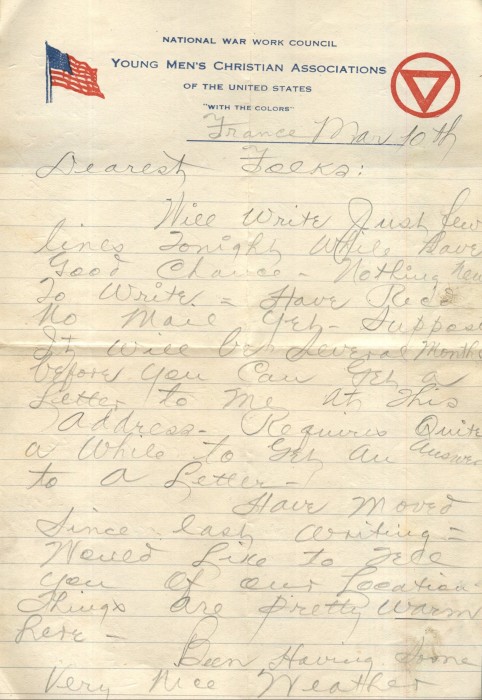 NATIONAL WAR WORK COUNCIL
YOUNG MEN'S CHRISTIAN ASSOCIATIONS
OF THE UNITED STATES
"WITH THE COLORS"
France Mar 10th
Dearest Folks:
Will Write Just few
lines Tonight While Have
Good Chance - Nothing New
To Write. = Have Recd
No Mail Yet - Suppose
It Will be Several Months
before you Can Get a
Letter to Me At This
Address - Requires Quite
a While to Get An Answer
to A Letter -
Have Moved
Since last Writing =
Would Like to Tell
you of our Location -
Things are Pretty Warm
here -
Been Having Some
Very Nice Weather